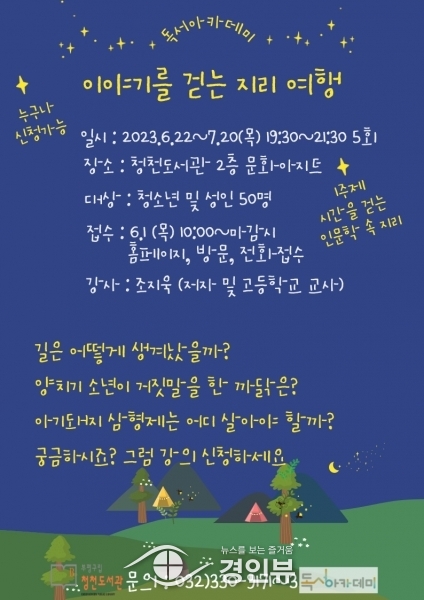 독서아카데미
이야기를 걷는 지리 여행
누구나
신청가능
일시 : 2023.6.22~7.20(목) 19:30~21:30 5회
장소 : 청천도서관 2층 문화아지트
대상 : 청소년 및 성인 50명
1주제
시간을 걷는
인문학 속 지리
접수 : 6.1 (목) 10:00~마감시
홈페이지, 방문, 전화접수
강사 : 조지욱 (저자 및 고등학교 교사)
길은 어떻게 생겨났을까?
양치기 소년이 거짓말을 한 까닭은?
아기돼지 삼형제는 어디 살아야 할까?
궁금하시죠? 그럼 강의 신청하세요
뉴스를 보는 즐거움
경인뷰
부평구립
청천도서관
문의 : 032)330
독서아카데미